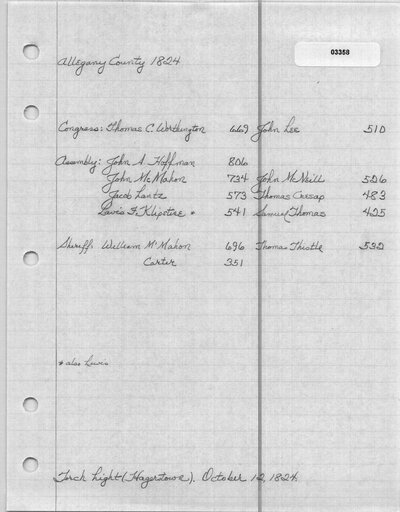 03358
Allegany County 1824
Congress: Thomas C. Worthington 669 John Lee 510
Assembly: John A. Hoffman 806
John McMahon 734 John McNeill 526
Jacob Lantz 573 Thomas Cresap 483
Lavis F. Klipstine * 541 Samuel Thomas 425
Sheriff: William McMahon 696 Thomas Thistle 532
Carter 351
* also Lewis
Torch Light (Hagerstown). October 12, 1824.